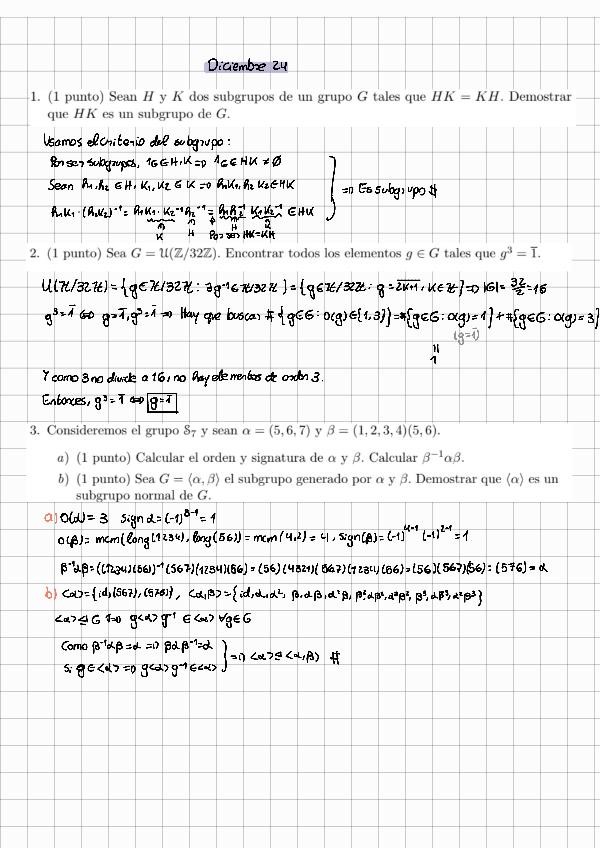 Diciembre 24
1. (1 punto) Sean H y K dos subgrupos de un grupo G tales que HK = KH. Demostrar
que HK es un subgrupo de G.
Usamos el criterio del subgrupo:
Por ser subgrupos, 1G ∈ H, K ⇒ 1G ∈ HK ≠ ∅
Sean h₁, h₂ ∈ H, K₁, K₂ ∈ K ⇒ h₁K₁, h₂K₂ ∈ HK
⇒ Es subgrupo #
h₁K₁·(h₂K₂)⁻¹ = h₁K₁·K₂⁻¹h₂⁻¹ = h₁h₂⁻¹ K₁K₂⁻¹ ∈ HK
K H Por ser HK=KH H K
2. (1 punto) Sea G = U(ℤ/32ℤ). Encontrar todos los elementos g ∈ G tales que g³ = 1̄.
U(ℤ/32ℤ) = {g ∈ ℤ/32ℤ : ∃g⁻¹ ∈ ℤ/32ℤ} = {g ∈ ℤ/32ℤ : g = 2K+1, K ∈ ℤ} ⇒ |G| = 32/2 = 16
g³ = 1̄ ⇔ g = 1̄, g³ = 1̄ ⇒ Hay que buscar #{g ∈ G : O(g) ∈ {1,3}} = #{g ∈ G : O(g) = 1} + #{g ∈ G : O(g) = 3}
(g = 1̄)
॥
1
Y como 3 no divide a 16, no hay elementos de orden 3.
Entonces, g³ = 1̄ ⇔ g = 1̄
3. Consideremos el grupo S₇ y sean α = (5, 6, 7) y β = (1, 2, 3, 4)(5, 6).
a) (1 punto) Calcular el orden y signatura de α y β. Calcular β⁻¹αβ.
b) (1 punto) Sea G = ⟨α, β⟩ el subgrupo generado por α y β. Demostrar que ⟨α⟩ es un
subgrupo normal de G.
a) O(α) = 3 sign α = (-1)³⁻¹ = 1
O(β) = mcm(long(1234), long(56)) = mcm(4,2) = 4, sign(β) = (-1)⁴⁻¹ (-1)²⁻¹ = 1
β⁻¹αβ = ((1234)(56))⁻¹ (567)(1234)(56) = (56)(4321)(567)(1234)(56) = (56)(567)(56) = (576) = α
b) <α> = {id, (567), (576)}, <α,β> = {id, α, α², β, αβ, α²β, β², αβ², α²β², β³, αβ³, α²β³}
<α> ⊴ G ⇔ g<α>g⁻¹ ∈ <α> ∀g ∈ G
Como β⁻¹αβ = α ⇒ βαβ⁻¹ = α
⇒ <α> ⊴ <α,β> #
Si g ∈ <α> ⇒ g<α>g⁻¹ ∈ <α>